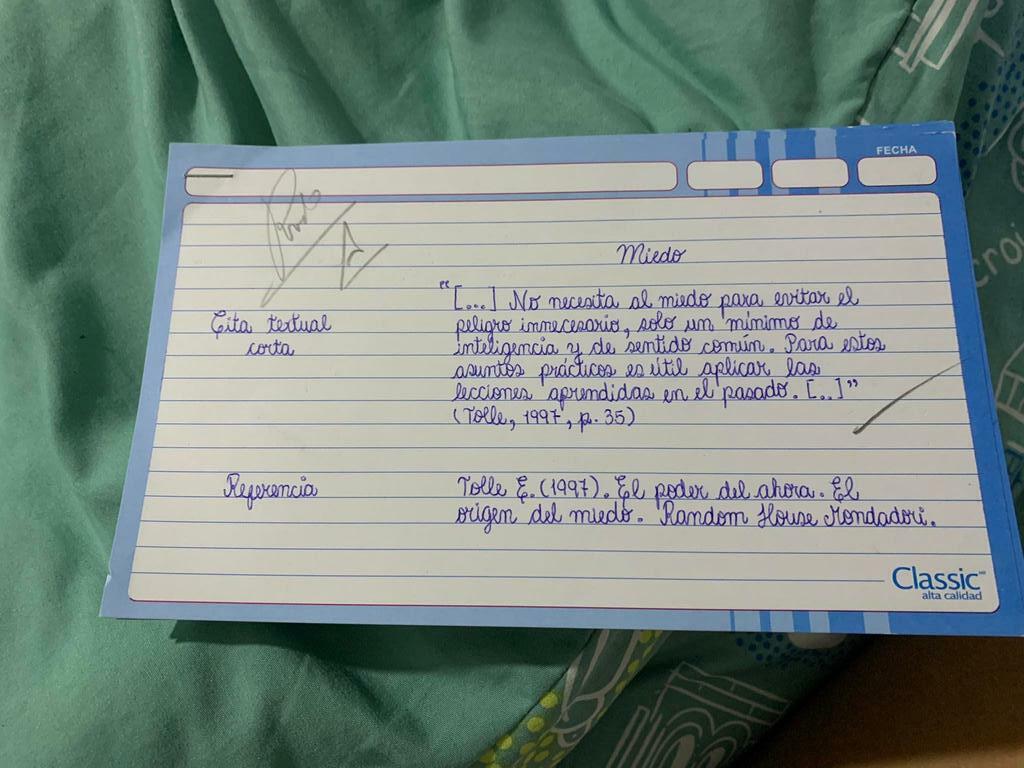 FECHA
Miedo
"[...] No necesita al miedo para evitar el
peligro innecesario, solo un mínimo de
inteligencia y de sentido común. Para estos
asuntos prácticos es útil aplicar las
lecciones aprendidas en el pasado. [..]"
(Tolle, 1997, p. 35)
Cita textual
corta
Referencia
Tolle E. (1997). El poder del ahora. El
origen del miedo. Random House Mondadori.
Classic
alta calidad